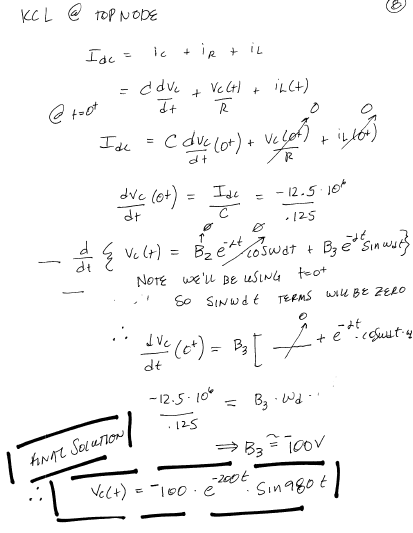 KCL @ TOP NODE
8
Idc = ic + iR + iL
= C dvc/dt + vc(t)/R + iL(t)
@ t=0+
0 0
Idc = C dvc/dt (0+) + vc(0+)/R + iL(0+)
dvc/dt (0+) = Idc/C = -12.5 · 10⁶/.125
0 0
— d/dt { vc(t) = B2 e^-αt cos ωdt + B3 e^-αt sin ωdt }
NOTE WE'LL BE USING t=0+
— SO SIN ωd t TERMS WILL BE ZERO
0
∴ dvc/dt (0+) = B3 [ + e^-αt · cos ωdt ·
-12.5 · 10⁶/.125 = B3 · ωd · ·
⇒ B3 ≅ -100V
FINAL SOLUTION
∴ vc(t) = -100 · e^-200t · sin 980 t